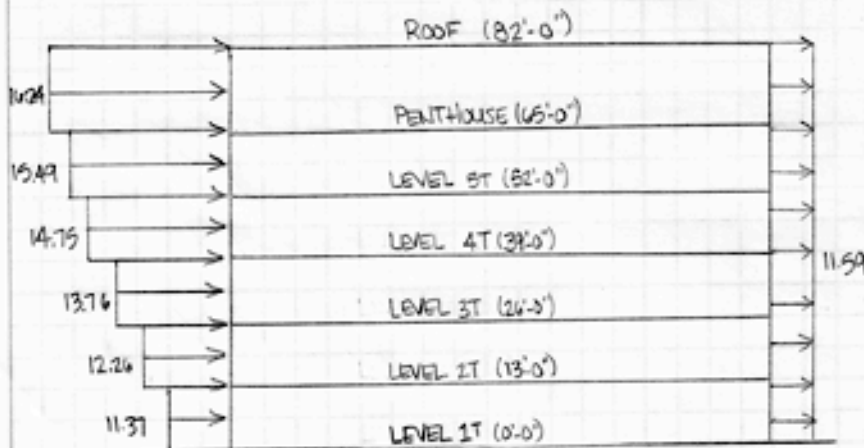 ROOF (82'-0")
16.24
PENTHOUSE (65'-0")
15.49
LEVEL 5T (52'-0")
14.75
LEVEL 4T (39'-0")
11.59
13.76
LEVEL 3T (26'-0")
12.26
LEVEL 2T (13'-0")
11.37
LEVEL 1T (0'-0")